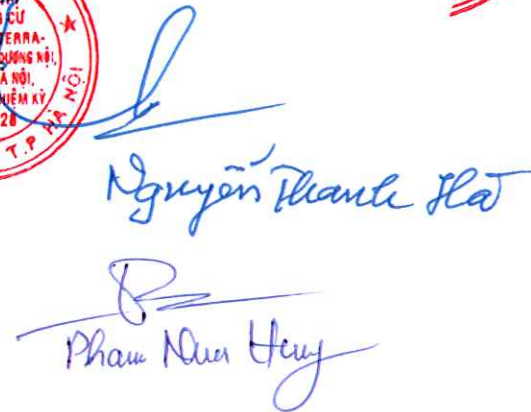 CƯ
TERRA-
DƯƠNG NỘI,
HÀ NỘI,
NHIỆM KỲ
28
T.P HÀ NỘI
Nguyễn Thanh Hà
Phạm Như Huy